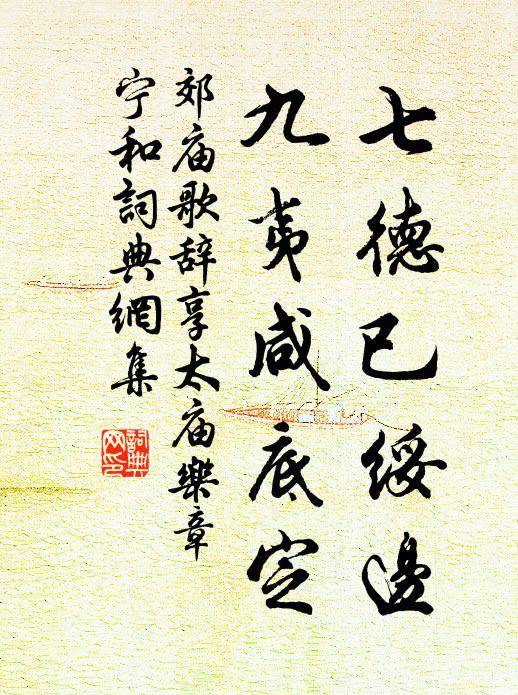 七德已綏邊
九夷咸底定
郊庙歌辞享太庙樂章
宁和詞典網集
詞典网印